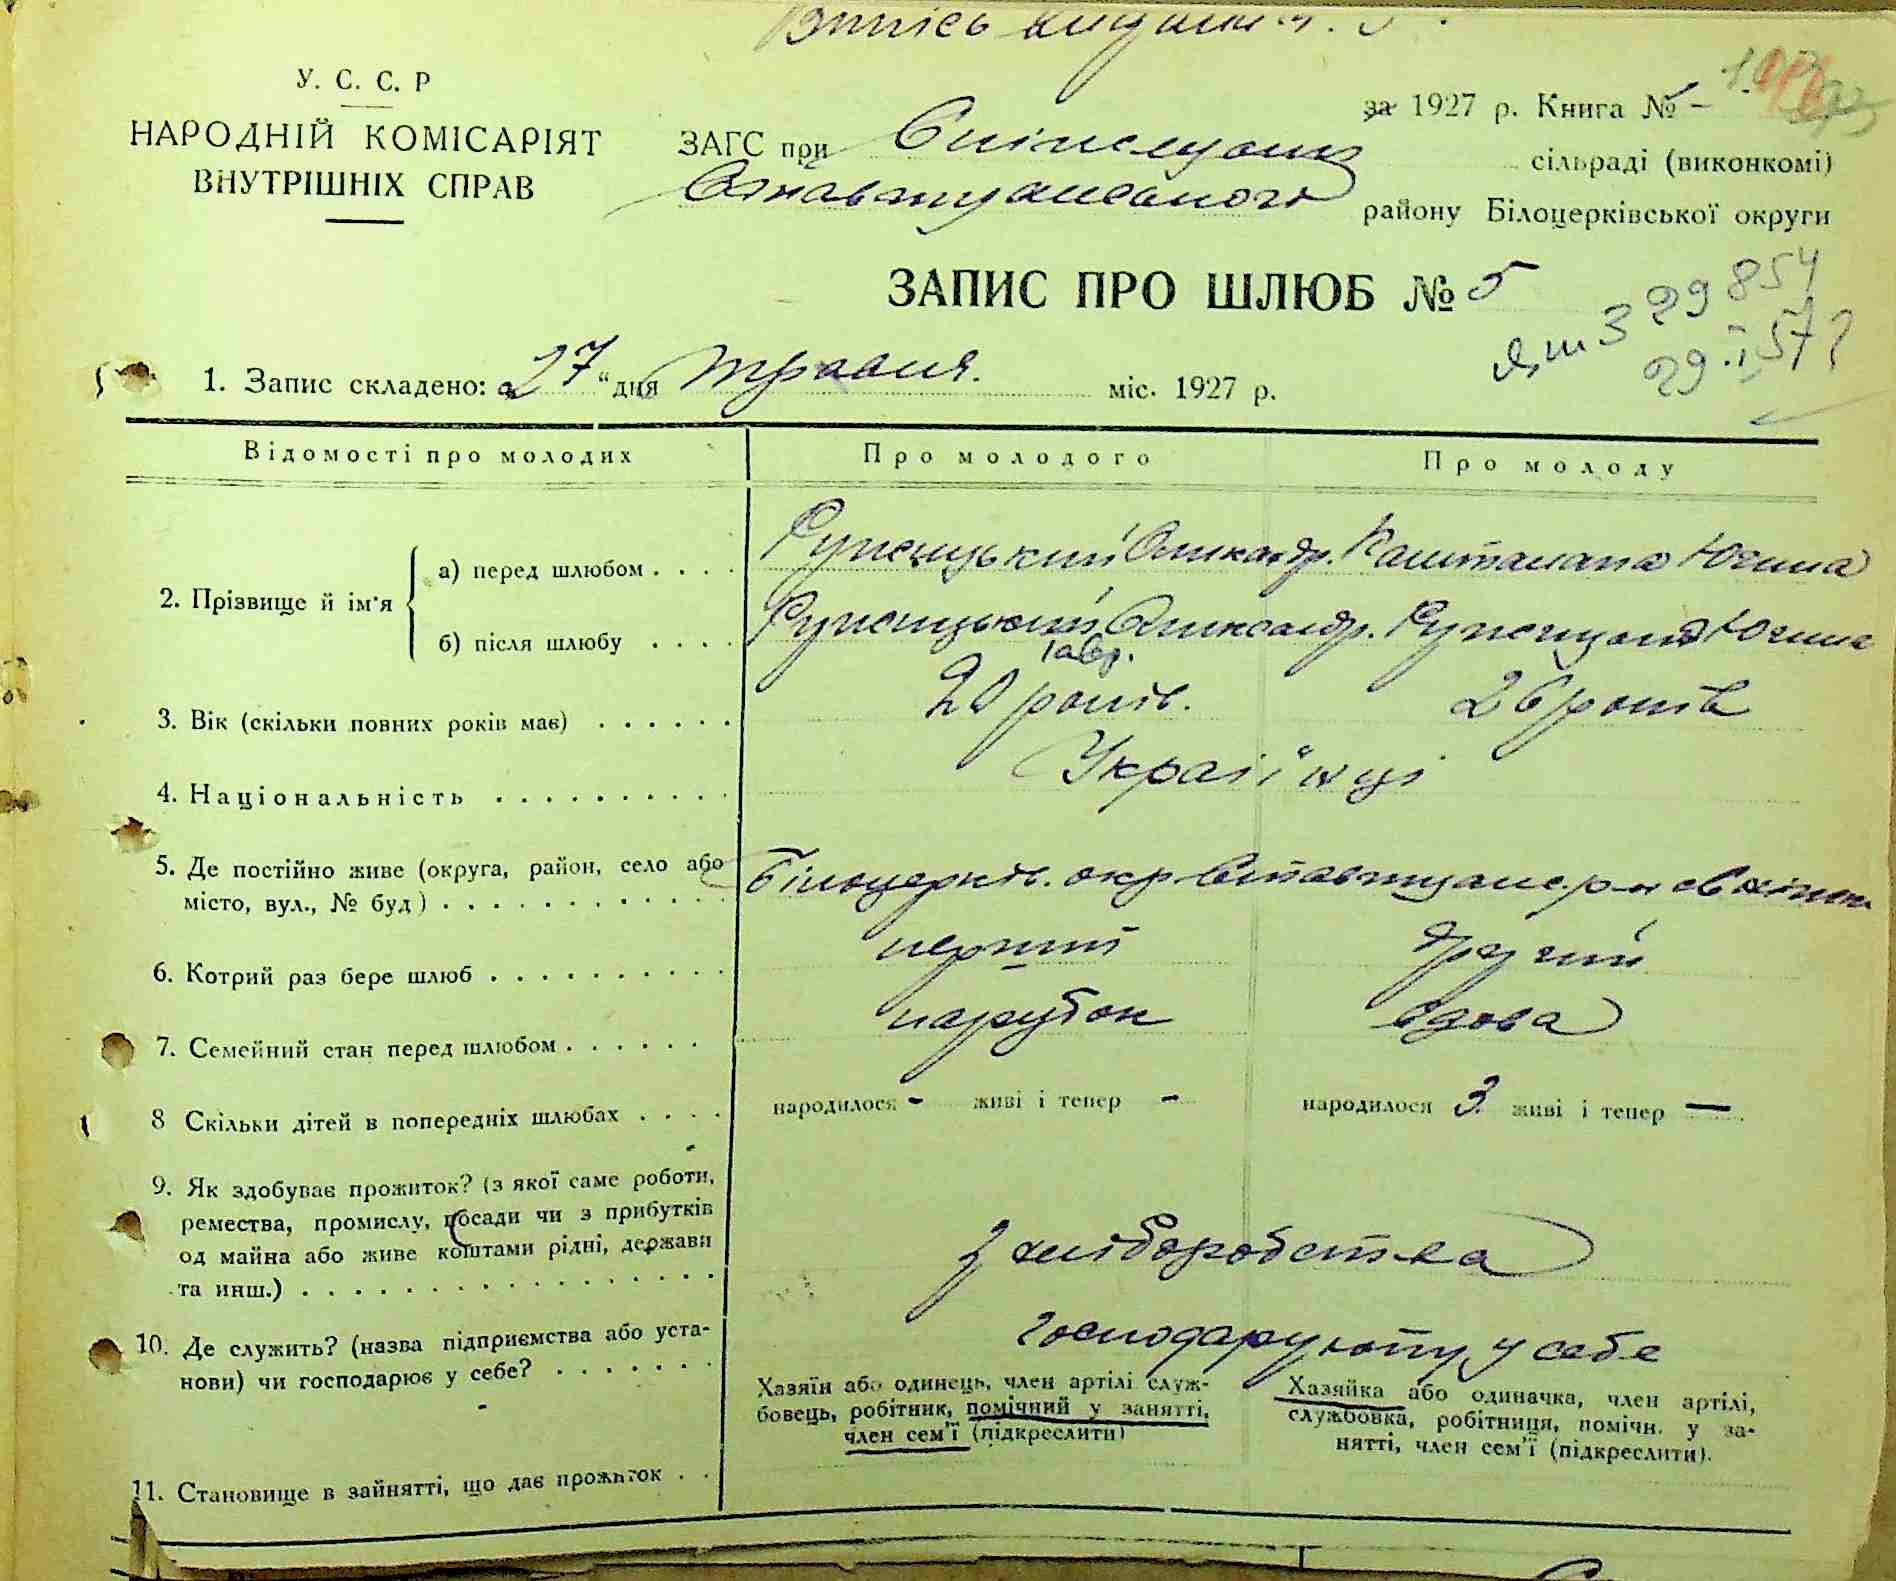 У. С. С. Р
за 1927 р. Книга № –
НАРОДНІЙ КОМІСАРІЯТ
ВНУТРІШНІХ СПРАВ
ЗАГС при сільраді (виконкомі)
району Білоцерківської округи
ЗАПИС ПРО ШЛЮБ № 5
29 854
29.I.57
1. Запис складено: „27“ дня травня. міс. 1927 р.
Відомості про молодих Про молодого Про молоду
2. Прізвище й ім'я
а) перед шлюбом . . . . Юхина
б) після шлюбу . . . . Юхина
3. Вік (скільки повних років має) . . . . . . 20 років. 26 років
4. Національність . . . . . . . . . . Україїнці
5. Де постійно живе (округа, район, село або
місто, вул., № буд) . . . . . . . . . . . . Білоцерків. окр
6. Котрий раз бере шлюб . . . . . . . . . перший другий
7. Семейний стан перед шлюбом . . . . . . парубок вдова
8 Скільки дітей в попередніх шлюбах . . . . народилося - живі і тепер - народилося 3. живі і тепер —
9. Як здобуває прожиток? (з якої саме роботи,
ремества, промислу, посади чи з прибутків
од майна або живе коштами рідні, держави
та инш.) . . . . . . . . . . . . . . . з хліборобства
10. Де служить? (назва підприємства або уста-
нови) чи господарює у себе? . . . . . . . господарують у себе
Хазяїн або одинець, член артілі служ-
бовець, робітник, помічний у занятті,
член сем'ї (підкреслити)
Хазяйка або одиначка, член артілі,
службовка, робітниця, помічн. у за-
нятті, член сем'ї (підкреслити).
11. Становище в зайнятті, що дає прожиток . .